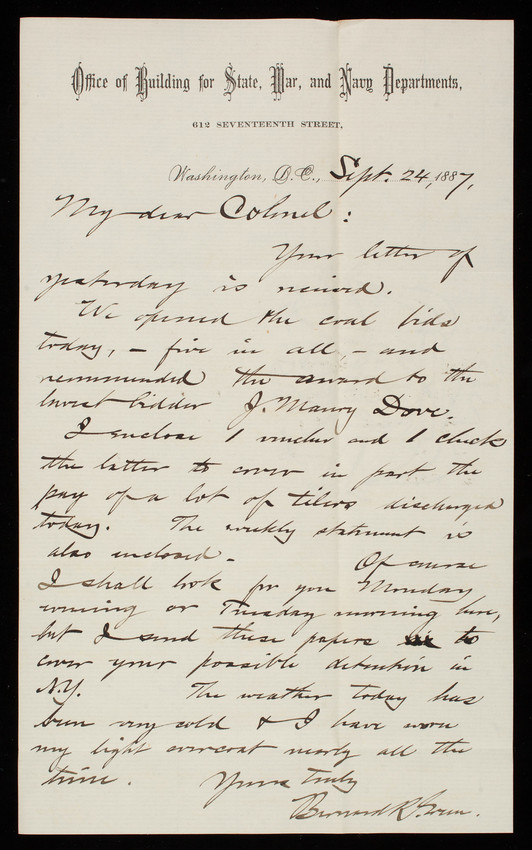 Office of Building for State, War, and Navy Departments,
612 SEVENTEENTH STREET,
Washington, D.C., Sept. 24, 1887,
My dear Colonel:
Your letter of
yesterday is received.
We opened the coal bids
today, - five in all, - and
recommended the award to the
lowest bidder J. Maury Dove.
I enclose 1 voucher and 1 check
the latter to cover in part the
pay of a lot of tilers discharged
today. The weekly statement is
also enclosed. Of course
I shall look for you Monday
evening or Tuesday morning here,
but I send these papers to
cover your possible detention in
N.Y. The weather today has
been very cold & I have worn
my light overcoat nearly all the
time. Yours truly
Bernard R. Green.